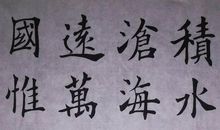 積水
滄海
遠萬
國惟